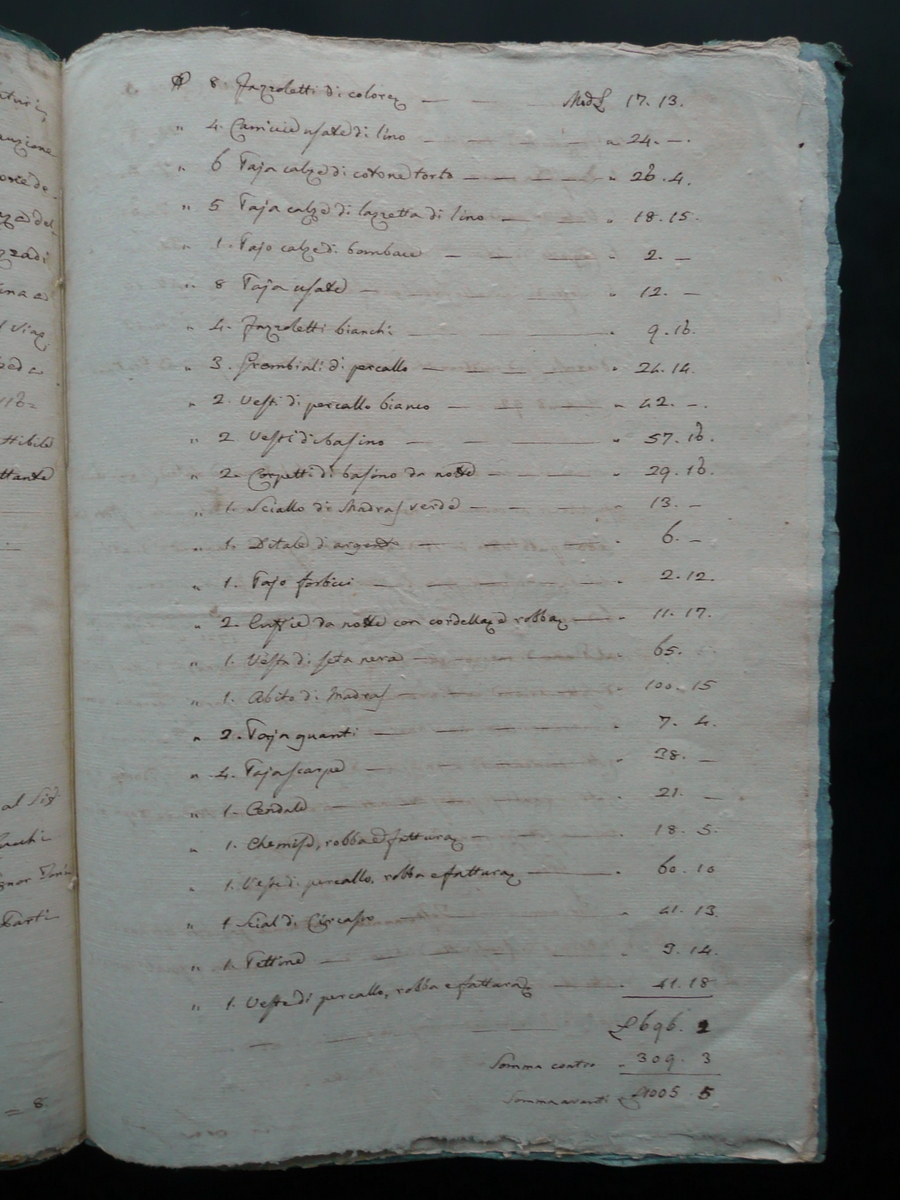 aturiz
auzione
zza del
zzadi
ina a
l viag.
ttibile
ttante
al Sig.r
Parti
= 8.
N.° 8. Fazzoletti di colore — — Mod.£ 17. 13.
" 4. Camicie usate di lino — — — " 24. —.
" 6 Paja calze di cotone torto — — — — " 26. 4.
" 5 Paja calze di lazzetta di lino — — — " 18. 15.
" 1. Pajo calze di bombace — — — " 2. —
" 8 Paja usate — — — — " 12. —
" 4. Fazzoletti bianchi — — — " 9. 16.
" 3. Grombiali di percallo — — — — " 24. 14.
" 2. Vesti di percallo bianco — — — — " 42. —.
" 2. Vesti di basino — — — " 57. 16.
" 2. Corpetti di basino da notte — — — " 29. 16.
" 1. Sciallo di Madras verde — — — " 13. —
" 1. Ditale d'argento — — — — " 6. —
" 1. Pajo forbici — — — — " 2. 12.
" 2. Cuffie da notte con cordella e robba — " 11. 17.
" 1. Vesta di seta nera — — — — " 65.
" 1. Abito di Madras — — — — " 100. 15
" 2. Paja guanti — — — — " 7. 4.
" 4. Paja scarpe — — — — " 38. —
" 1. Cendale — — — — " 21. —
" 1. Chemise, robba e fattura — — — " 18. 5.
" 1. Veste di percallo, robba e fattura — — " 60. 10
" 1 Scial di Circasso — — — " 41. 13.
" 1. Pettine — — — — " 3. 14.
" 1. Veste di percallo, robba e fattura — — " 41. 18
£ 696. 2
Somma contro " 309. 3
Somma avanti £ 1005 5